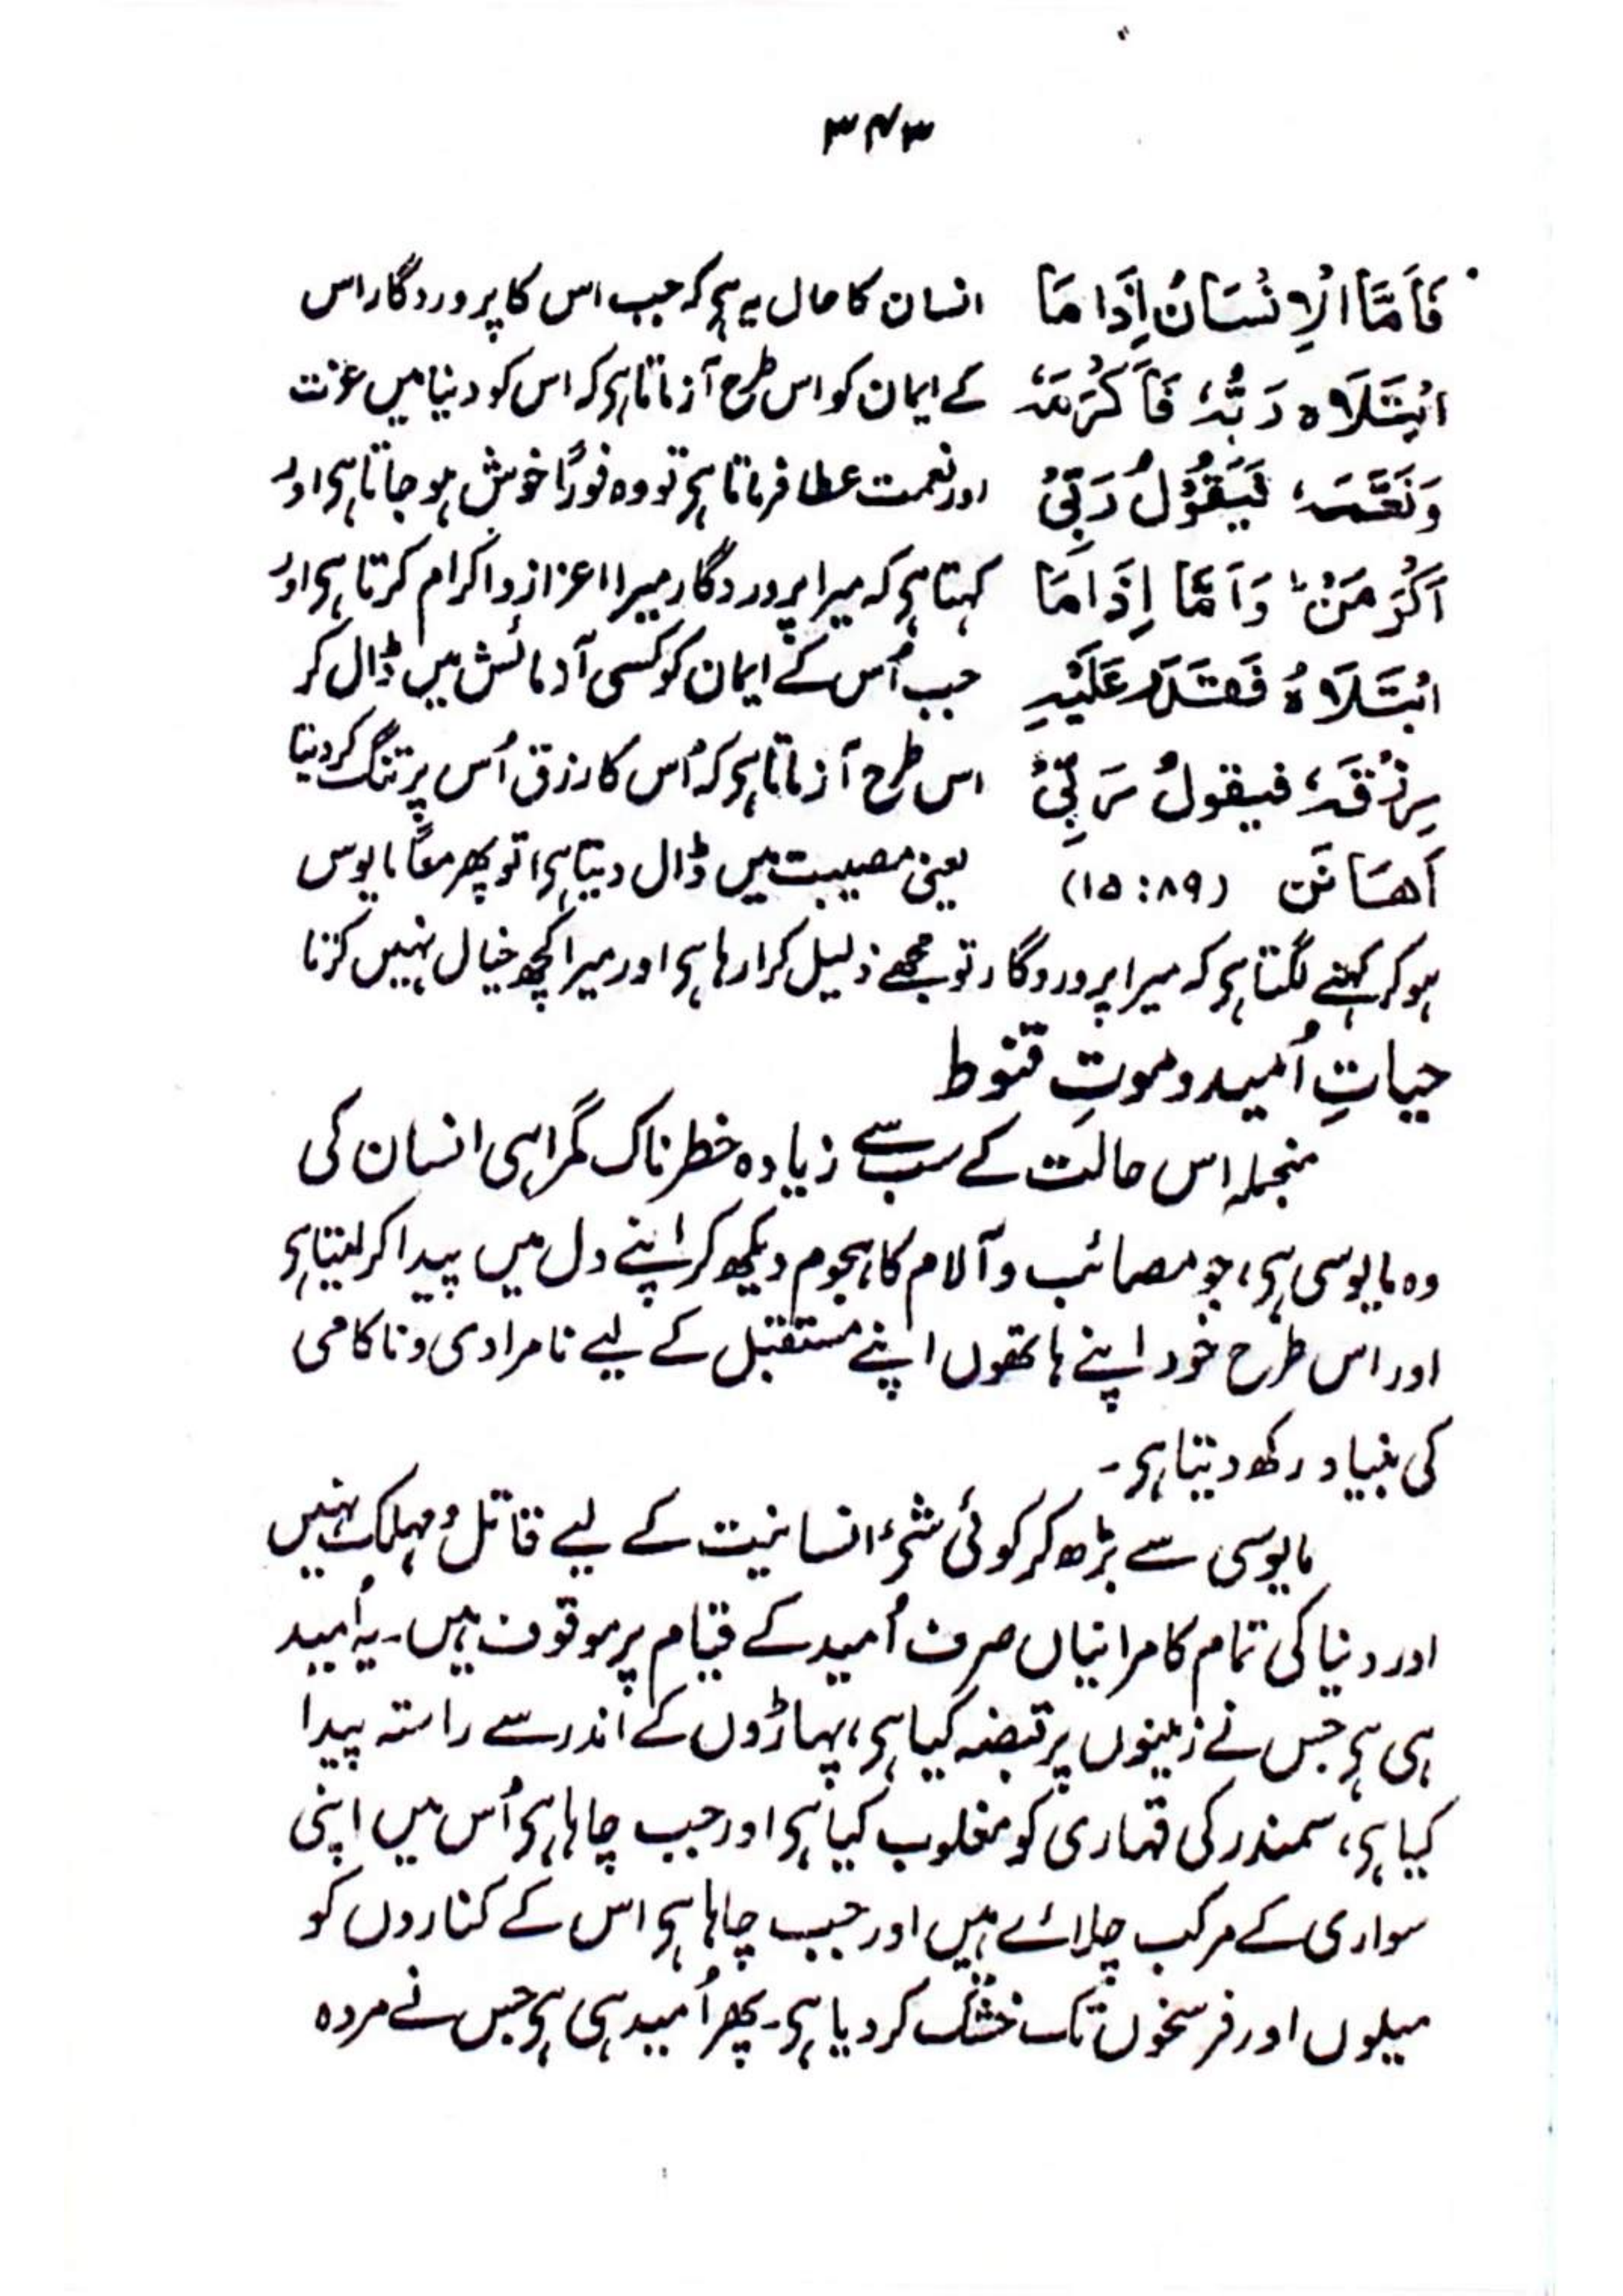 ۳۴۳
فَاَمَّا الْاِنْسَانُ اِذَا مَا انسان کا حال یہ ہے کہ جب اس کا پروردگار اس
ابْتَلَاہ رَبُّہٗ فَاَکْرَمَہٗ کے ایمان کو اس طرح آزماتا ہے کہ اس کو دنیا میں عزت
وَنَعَّمَہٗ فَیَقُوْلُ رَبِّیْ اور نعمت عطا فرماتا ہے تو وہ فوراً خوش ہو جاتا ہے اور
اَکْرَمَنْ ؕ وَاَمَّا اِذَا مَا کہتا ہے کہ میرا پروردگار میرا اعزاز و اکرام کرتا ہے اور
ابْتَلَاہُ فَقَدَرَ عَلَیْہِ جب اُس کے ایمان کو کسی آزمائش میں ڈال کر
رِزْقَہٗ فیقولُ رَبِّیْ اس طرح آزماتا ہے کہ اُس کا رزق اُس پر تنگ کر دیتا
اَھَانَن (۸۹:۱۵) یعنی مصیبت میں ڈال دیتا ہے) تو پھر معاً مایوس
ہو کر کہنے لگتا ہے کہ میرا پروردگار تو مجھے ذلیل کرا رہا ہے اور میرا کچھ خیال نہیں کرتا
حیاتِ اُمید و موتِ قنوط
منجملہ اس حالت کے سب سے زیادہ خطرناک گمراہی انسان کی
وہ مایوسی ہے، جو مصائب و آلام کا ہجوم دیکھ کر اپنے دل میں پیدا کر لیتا ہے
اور اس طرح خود اپنے ہاتھوں اپنے مستقبل کے لیے نامرادی و ناکامی
کی بنیاد رکھ دیتا ہے۔
مایوسی سے بڑھ کر کوئی شئے انسانیت کے لیے قاتل و مہلک نہیں
اور دنیا کی تمام کامرانیاں صرف اُمید کے قیام پر موقوف ہیں۔ یہ اُمید
ہی ہے جس نے زمینوں پر قبضہ کیا ہے، پہاڑوں کے اندر سے راستہ پیدا
کیا ہے، سمندر کی قہاری کو مغلوب کیا ہے اور جب چاہا ہے اُس میں اپنی
سواری کے مرکب چلائے ہیں اور جب چاہا ہے اس کے کناروں کو
میلوں اور فرسخوں تک خشک کر دیا ہے۔ پھر اُمید ہی ہے جس نے مردہ